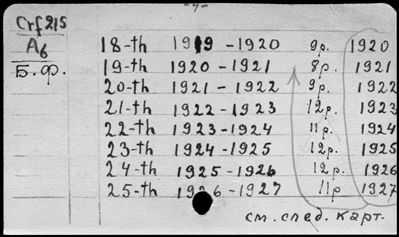 -7-
Crf 215
A6
Б.ф.
18-th 1919-1920 9p. 1920
19-th 1920-1921 8p. 1921
20-th 1921-1922 9p. 1922
21-th 1922-1923 12p. 1923
22-th 1923-1924 11p. 1924
23-th 1924-1925 12p. 1925
24-th 1925-1926 12p. 1926
25-th 1926-1927 11p 1927
см. след. карт.